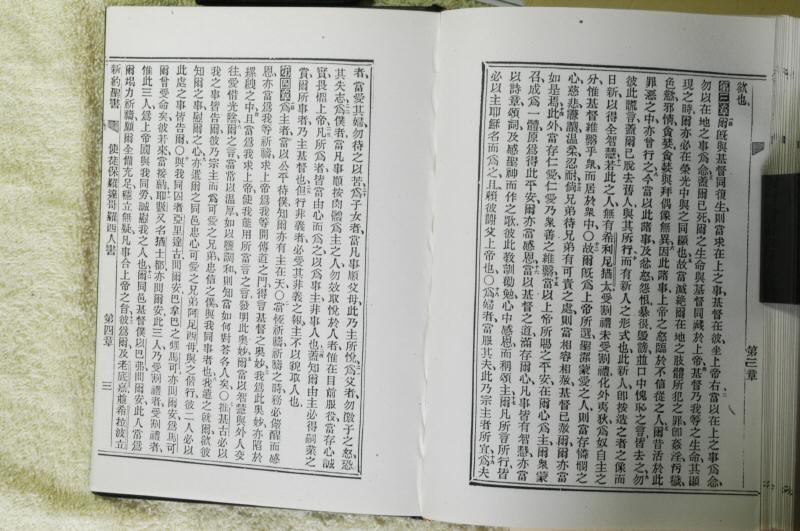 第三章
欲也、
第三章爾既與基督同復生、則當求在上之事、基督在彼、坐上帝右、當以在上之事爲念、
勿以在地之事爲念、蓋爾已死、爾之生命與基督同藏於上帝、基督乃我等之生命、其顯
現之時、爾亦必在榮光中與之同顯也、故當滅絕爾在地之肢體所犯之罪、卽姦淫、污穢、
色慾、邪情、貪婪、貪婪與拜偶像無異、因此諸事上帝之怒臨於不信從之人、爾昔活於此
罪惡之中、亦曾行之、今當以此諸事、及忿怒怨恨暴很毀謗、並口中愧恥之言、皆去之、勿
彼此謊言、蓋爾已脫去舊人、與其所行、而有新人之形式也、此新人卽按造之者之像而
日新、以得全智慧、若此之人、無有希利尼猶太受割禮未受割禮化外夷狄爲奴自主之
分、惟基督維繫乎衆、而居於衆中○故爾既爲上帝所選、聖潔蒙愛之人、則當存憐憫之
心、慈悲謙讓溫柔忍耐、倘兄弟待兄弟有可責之處、則當相容相赦、基督已赦爾、爾亦當
如是焉、此外當存仁愛、仁愛乃衆善之維繫、當以上帝所賜之平安、在爾心爲主、爾衆蒙
召成爲一體、原爲得此平安、爾亦當感恩、當以基督之道、滿存爾心、凡爾學諸智慧、亦當
以詩章頌詞及感聖神而作之歌、彼此教訓勸勉、心中感恩而稱頌主、爾凡所言所行、皆
必以主耶穌名而爲之、且賴彼謝父上帝也○爲婦者、當服其夫、此乃宗主者所宜、爲夫
者、當愛其婦、勿待之以苦、爲子女者、當凡事順父母、此乃主所悅、爲父者、勿激子之怒、恐
其失志、爲僕者、當凡事順按肉體爲主之人、勿效取悅於人者、惟在目前服役、當存心誠
實、畏懼上帝、凡所爲者、皆當由心而爲之、以爲事主、非事人也、蓋知爾由主必得嗣業之
賞、爾所事者、乃主基督也、但行非義者、必受其非義之報、主不以貌取人也、
第四章爲主者、當以公平待僕、知爾亦有主在天○當恆祈禱、祈禱之時、務必儆醒而感
恩、亦當爲我等祈禱、求上帝爲我等開傳道之門、得言基督之奧妙、我爲此奧妙、亦陷於
縲絏之中、且當爲我求上帝、使我能用所當言之言、發明此奧妙、爾當以智慧、與外人交
往、愛惜光陰、爾之言當常以溫厚、如以鹽調和、則知當如何對答各人矣○推基古必以
我之事皆告爾、彼乃宗主而爲可愛之兄弟、忠信之僕、與我同事者也、我遣之就爾、欲彼
知爾之事、慰爾之心、亦遣爾之同邑忠心可愛之兄弟阿尼西母與之偕行、彼二人必以
此處之事皆告爾○與我同囚者亞里達古問爾安、巴拿巴之甥馬可亦問爾安、爲馬可
爾曾受命矣、彼若來、當接納、耶數又名猶士都亦問爾安、此三人乃受割禮者、受割禮者、
惟此三人、爲上帝國與我同勞、誠慰我之人也、爾同邑基督僕以巴弗問爾安、此人常爲
爾竭力祈禱、願爾全備充足、穩立無疑、凡事合上帝之旨、彼爲爾及老底嘉、蓋希拉波立
新約聖書 使徒保羅達哥羅西人書 第四章 三